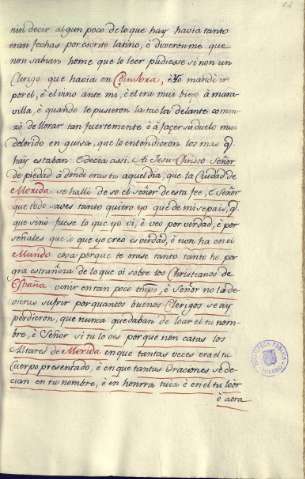 nin decir algun poco de lo que hay havia tanto
eran fechas por escrito latino, è dixeron me que
non sabian home que lo leer pudiesse si non un
Clerigo que hacia en Coimbra, è Yo mandè ir
por el, è el vino ante mi, è el era mui viejo à mara-
villa, è quando le pusieron la tabla delante comen-
zò de llorar tan fuertemente è à façer su duelo mui
dolorido en guissa, que lo entendieron los mas q
hay estaban è decia assi. Ai Jesu Christo Señor
de piedad à donde eras tu aquel dia, que la Ciudad de
Merida se hallò de ver el señor de esta fee, è Señor
que todo saves tanto quitaro yo què de mi se pais, q
que vino fuese lo que yo vi, è veo por verdad, è por
señales que se que yo creo es verdad, è non ha en el
Mundo cosa porque te errase tanto tanto he por
gra estrañeza de lo que oi sobre los Christianos de
España venir en tan poco tiempo, è Señor no la de-
vieras sufrir por quantos buenos Clerigos se ay
perdieron, que nunca quedaban de loar el tu nom-
bre, è Señor si tu lo oìs por que non catas los
Altares de Merida en que tantas veces era el tu
Cuerpo presentado, è en que tantas Oraciones se de-
cian en tu nombre, è en honrra tuia è en el tu loor
è aora